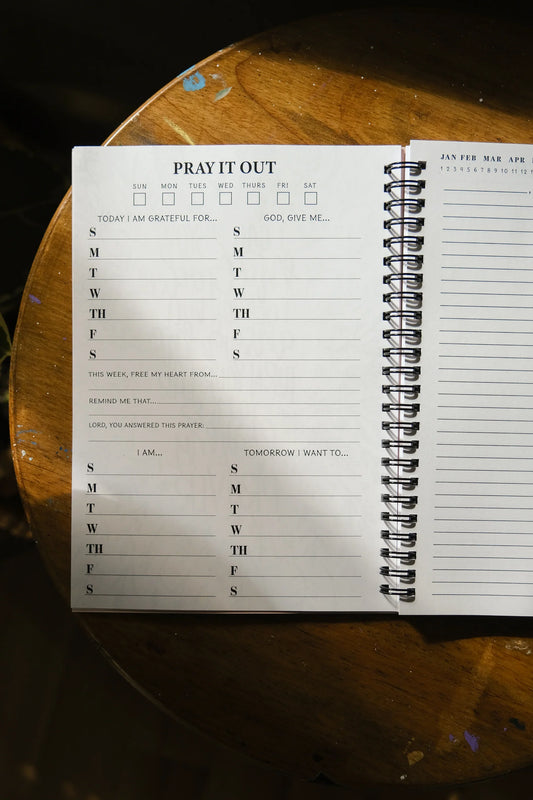 PRAY IT OUT
SUN MON TUES WED THURS FRI SAT
TODAY I AM GRATEFUL FOR...
S
M
T
W
TH
F
S
GOD, GIVE ME...
S
M
T
W
TH
F
S
THIS WEEK, FREE MY HEART FROM...
REMIND ME THAT...
LORD, YOU ANSWERED THIS PRAYER:
I AM...
S
M
T
W
TH
F
S
TOMORROW I WANT TO...
S
M
T
W
TH
F
S
JAN FEB MAR APR
1 2 3 4 5 6 7 8 9 10 11 12